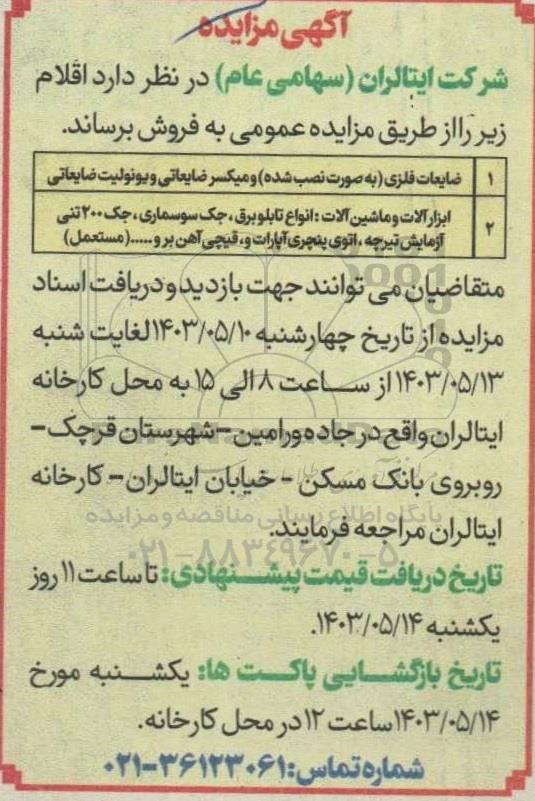 آگهی مزایده
شرکت ایتالران (سهامی عام) در نظر دارد اقلام
زیر را از طریق مزایده عمومی به فروش برساند.
۱ ضایعات فلزی (به صورت نصب شده) و میکسر ضایعاتی و یونولیت ضایعاتی
۲ ابزارآلات و ماشین آلات : انواع تابلو برق ، جک سوسماری ، جک ۲۰۰ تنی
آزمایش تیرچه ، اتوی پنچری آپارات و ، قیچی آهن بر و ......(مستعمل)
متقاضیان می توانند جهت بازدید و دریافت اسناد
مزایده از تاریخ چهارشنبه ۱۴۰۳/۰۵/۱۰ لغایت شنبه
۱۴۰۳/۰۵/۱۳ از ساعت ۸ الی ۱۵ به محل کارخانه
ایتالران واقع در جاده ورامین – شهرستان قرچک –
روبروی بانک مسکن – خیابان ایتالران – کارخانه
ایتالران مراجعه فرمایند.
پایگاه اطلاع رسانی مناقصه و مزایده
۰۲۱-۸۸۳۴۹۶۷۰-۵
تاریخ دریافت قیمت پیشنهادی: تا ساعت ۱۱ روز
یکشنبه ۱۴۰۳/۰۵/۱۴.
تاریخ بازگشایی پاکت ها: یکشنبه مورخ
۱۴۰۳/۰۵/۱۴ ساعت ۱۲ در محل کارخانه.
شماره تماس: ۳۶۱۲۳۰۶۱-۰۲۱